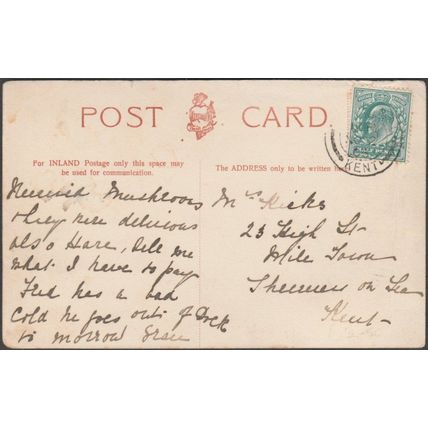 POST CARD.
For INLAND Postage only this space may
be used for communication.
The ADDRESS only to be written here
KENT
Received Mushrooms
they were delicious
also Hare, tell me
what I have to pay
Fred has a bad
Cold he goes out of Dock
to morrow
Mrs Hicks
23 High St
Mile Town
Sheerness on Sea
Kent